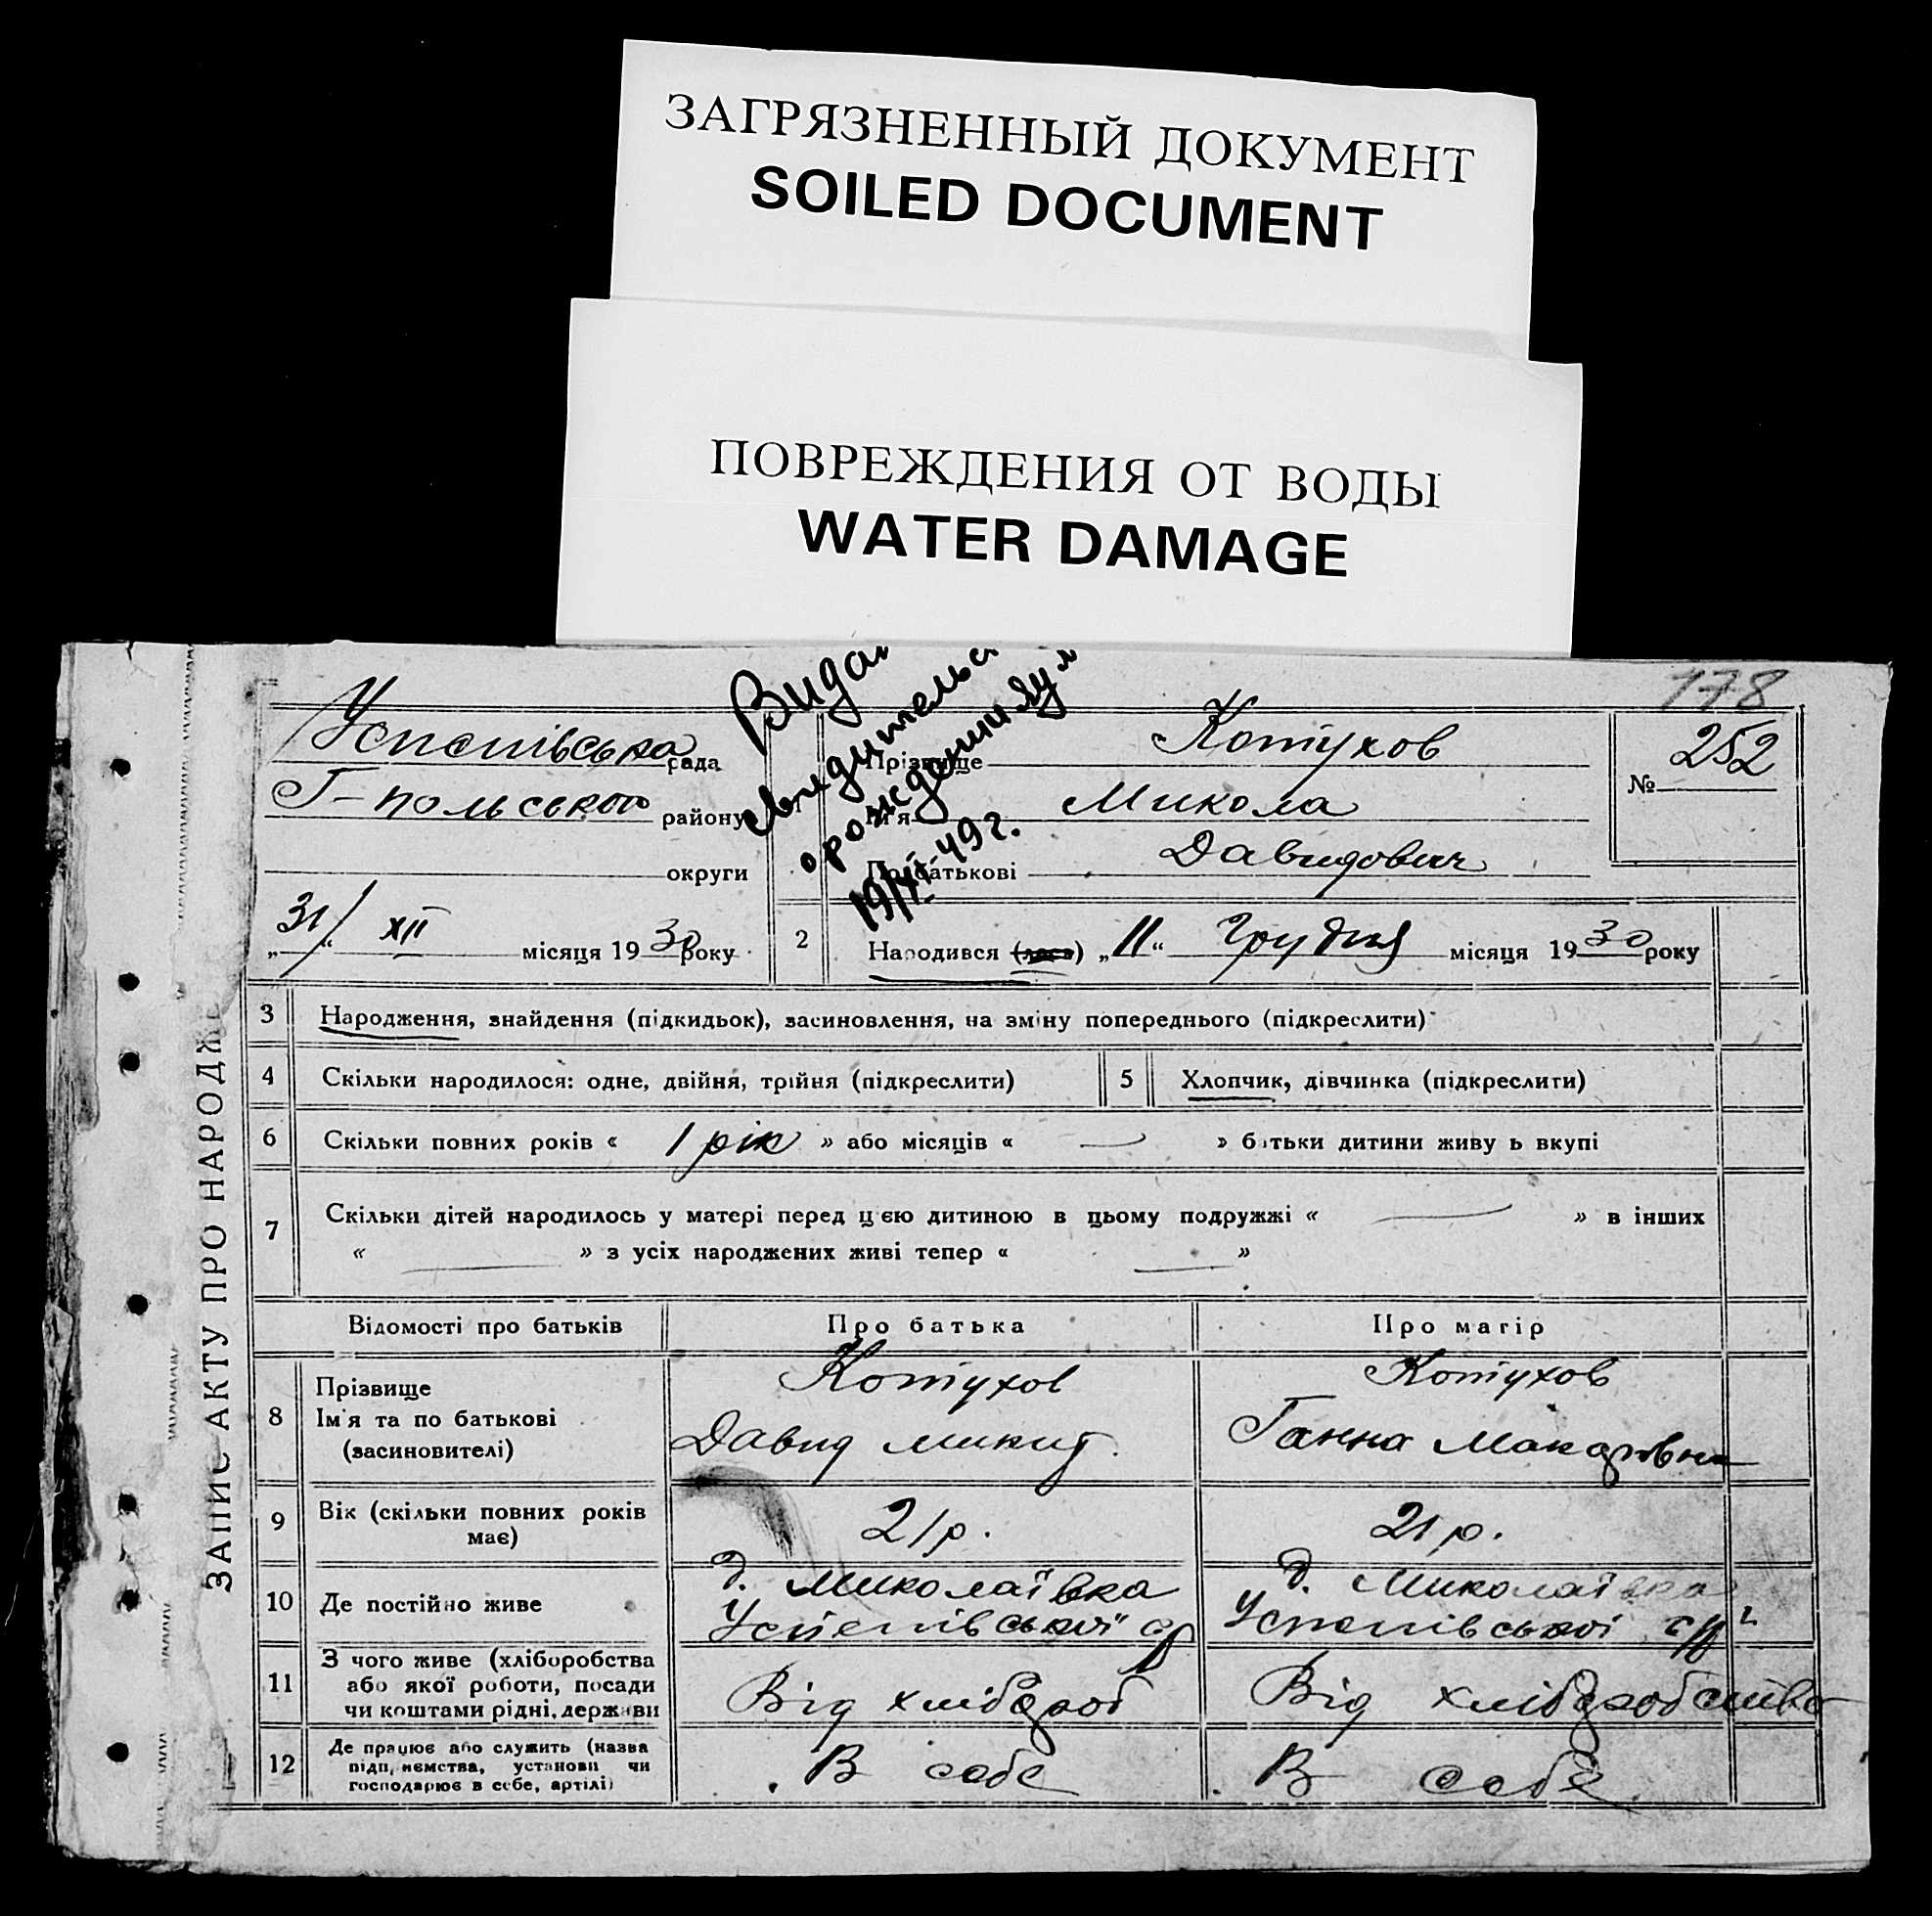 ЗАГРЯЗНЕННЫЙ ДОКУМЕНТ
SOILED DOCUMENT
ПОВРЕЖДЕНИЯ ОТ ВОДЫ
WATER DAMAGE
178
Видан
свидительс
о рождении Яул
19/XI-49 г.
ЗАПИС АКТУ ПРО НАРОДЖЕ
Успенівська рада
Г-польського району
округи
„31/“ XII місяця 1930 року
Прізвище Котухов
Ім'я Микола
По батькові Давидович
№ 252
2 Народився (лася) „11“ Грудня місяця 1930 року
3 Народження, знайдення (підкидьок), засиновлення, на зміну попереднього (підкреслити)
4 Скільки народилося: одне, двійня, трійня (підкреслити) 5 Хлопчик, дівчинка (підкреслити)
6 Скільки повних років « 1 рік » або місяців « — » батьки дитини живуть вкупі
7 Скільки дітей народилось у матері перед цією дитиною в цьому подружжі « — » в інших
« — » з усіх народжених живі тепер « — »
Відомості про батьків Про батька Про матір
8 Прізвище
Ім'я та по батькові
(засиновителі)
Котухов
Давид Микит.
Котухов
Ганна Макарівна
9 Вік (скільки повних років
має)
21 р.
21 р.
10 Де постійно живе
д. Миколаївка
Успенівської с/р
д. Миколаївка
Успенівської с/р
11 З чого живе (хліборобства
або якої роботи, посади
чи коштами рідні, держави
Від хлібороб
Від хліборобства
12 Де працює або служить (назва
підприємства, установи чи
господарює в себе, артілі)
В себе
В себе